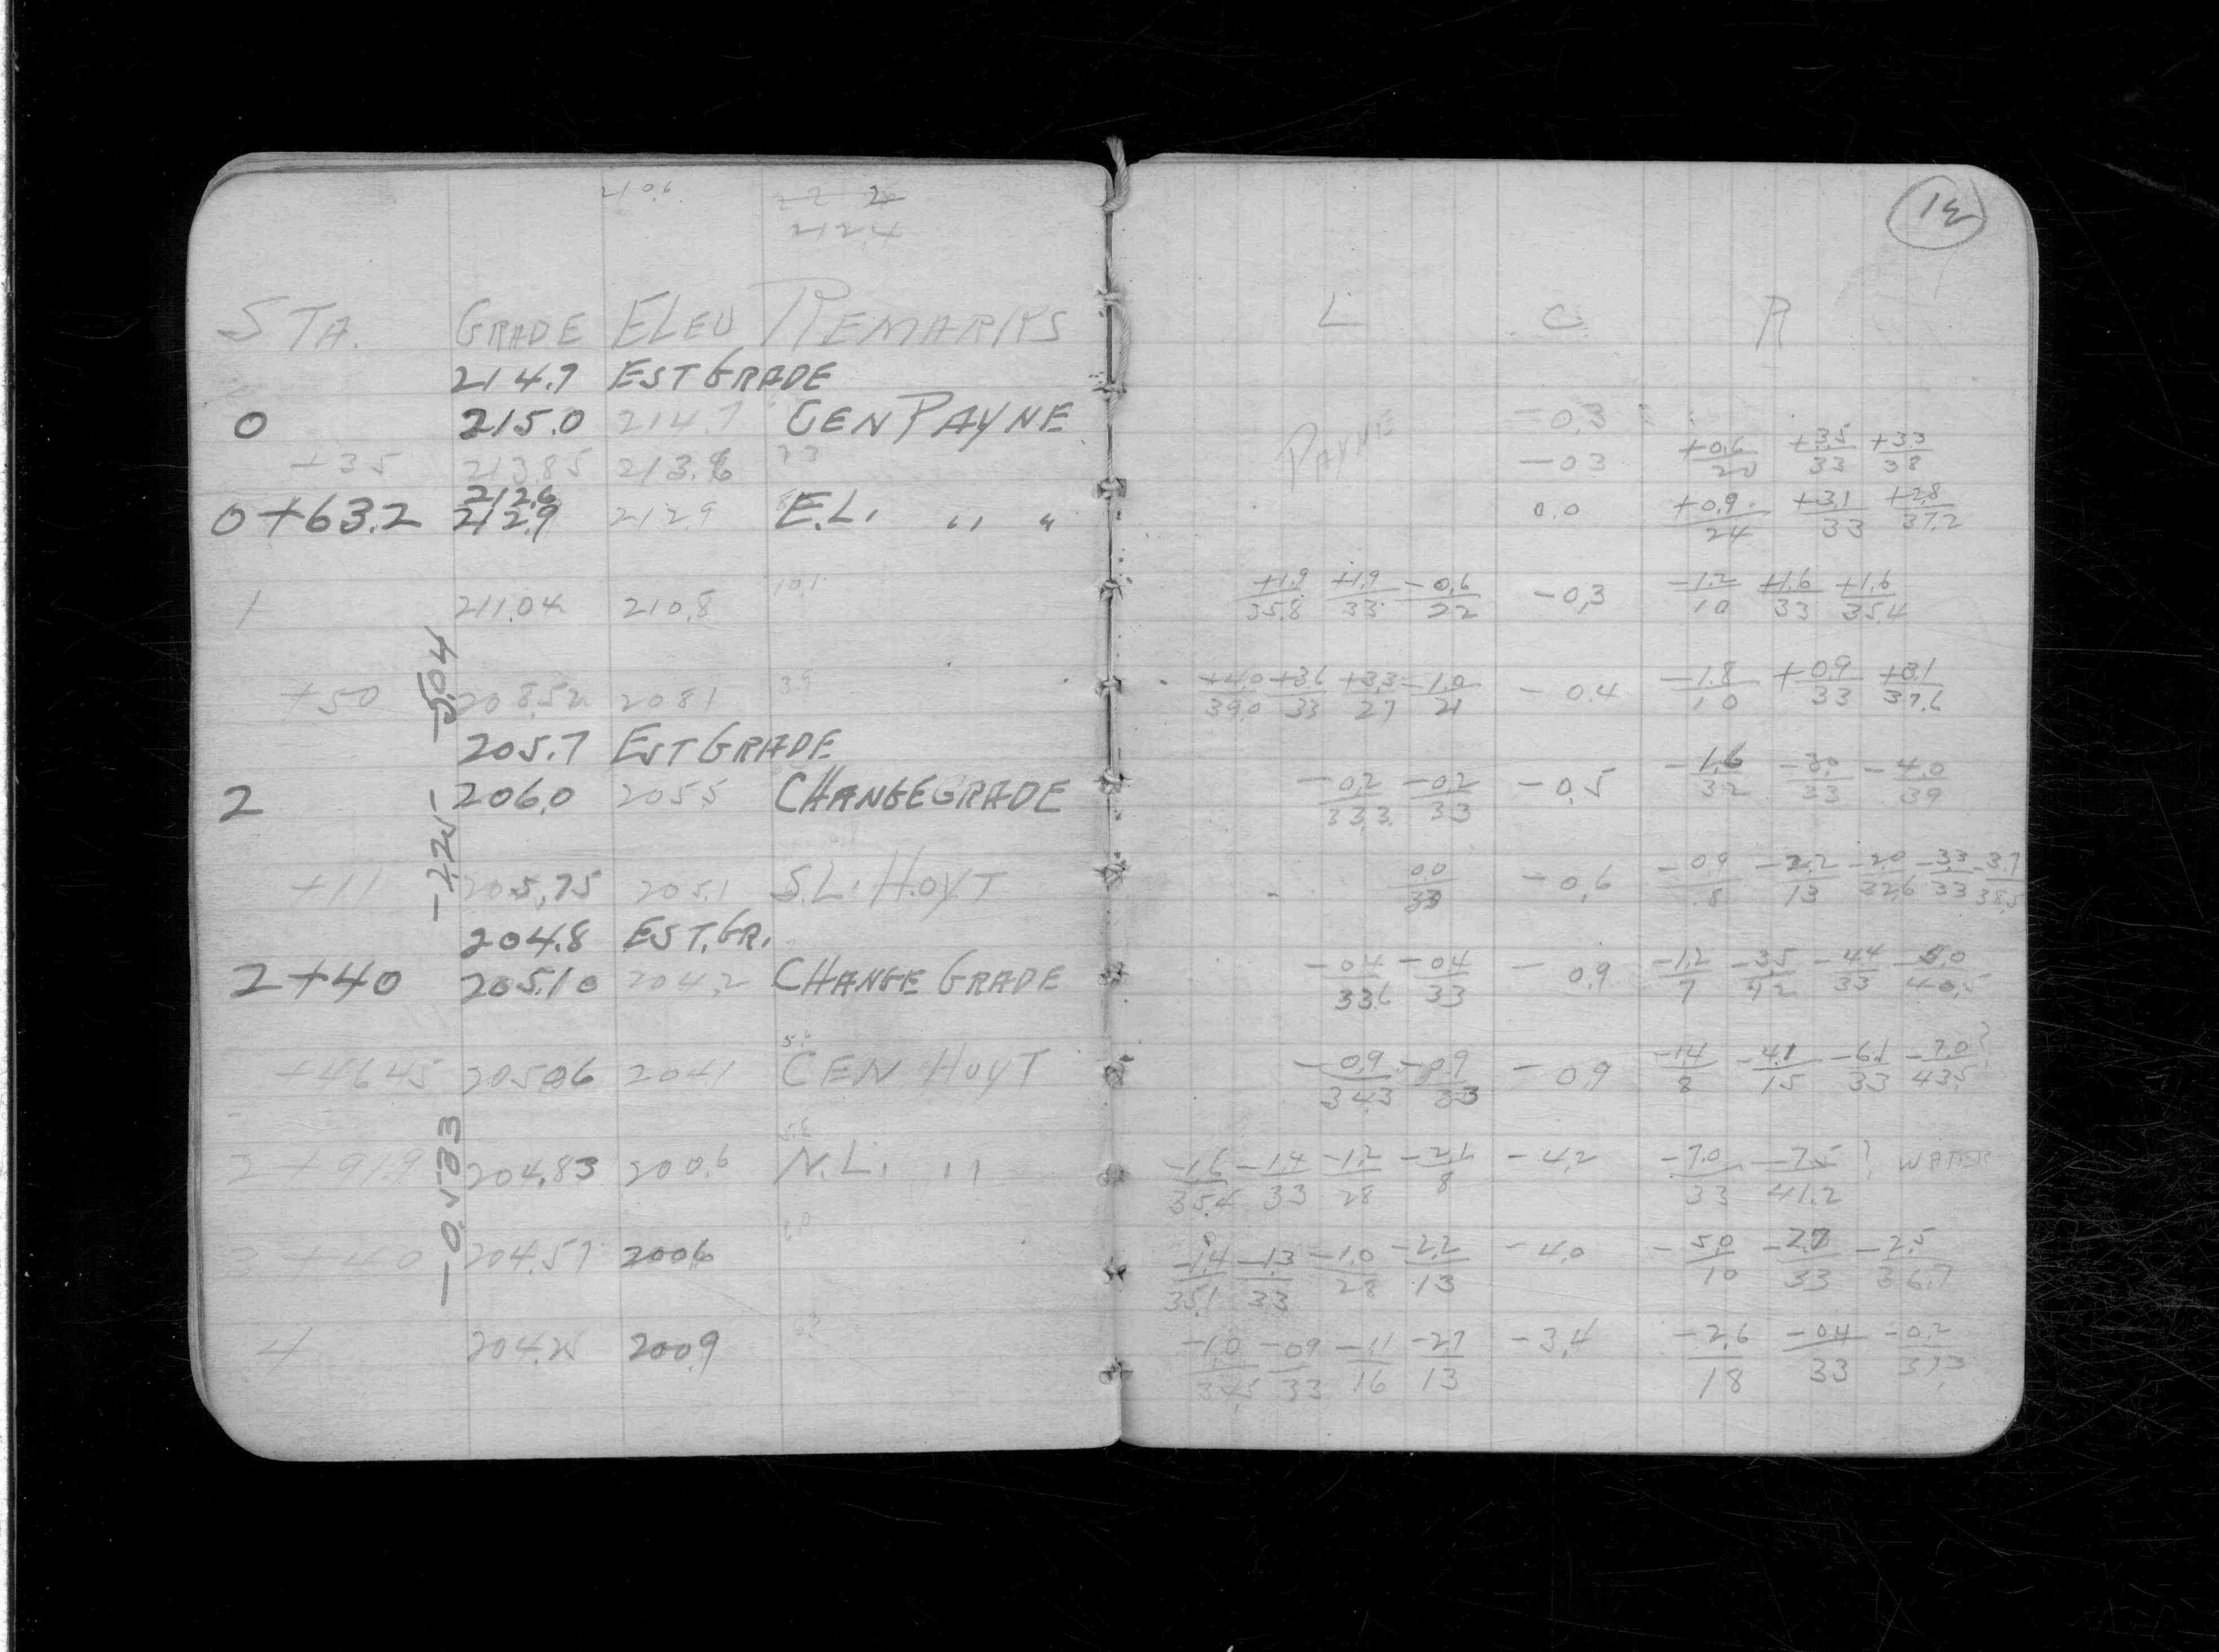 210.6
212.4
STA. GRADE ELEV REMARKS
214.7 EST GRADE
0 215.0 214.7 CEN PAYNE
+35 213.85 213.6
212.6
0+63.2 212.9 212.9 E.L. " "
1 211.04 210.8 10.1
+50 208.52 208.1 3.9
-5.04
205.7 EST GRADE
2 206.0 205.5 CHANGE GRADE
-2.25
+11 205.75 205.1 S.L. HOYT
204.8 EST. GR.
2+40 205.10 204.2 CHANGE GRADE
+46.45 205.06 204.1 CEN HOYT
2+91.9 204.83 200.6 N.L. "
-0.533
3+40 204.57 200.6
4 204.25 200.9
L C R
PAYNE -0.3
-0.3 +0.6/20 +3.5/33 +3.3/38
0.0 +0.9/24 +3.1/33 +2.8/37.2
+1.9/35.8 +1.9/33 -0.6/22 -0.3 -1.2/10 +1.6/33 +1.6/35.4
+4.0/39.0 +3.6/33 +3.3/27 -1.0/21 -0.4 -1.8/10 +0.9/33 +3.1/37.6
-0.2/33.3 -0.2/33 -0.5 -1.6/32 -3.0/33 -4.0/39
0.0/33 -0.6 -0.9/8 -2.2/13 -2.0/32.6 -3.3/33 -3.7/38.5
-0.4/33.6 -0.4/33 -0.9 -1.2/7 -3.5/42 -4.4/33 -5.0/40.5
-0.9/34.3 -0.9/33 -0.9 -1.4/8 -4.1/15 -6.1/33 -7.0/43.5 ?
-1.6/35.4 -1.4/33 -1.2/28 -2.1/8 -4.2 -7.0/33 -7.5/41.2 ? WATER
-1.4/35.1 -1.3/33 -1.0/28 -2.2/13 -4.0 -5.0/10 -2.7/33 -2.5/36.7
-1.0/34.5 -0.9/33 -1.1/16 -2.7/13 -3.4 -2.6/18 -0.4/33 -0.2/33.3